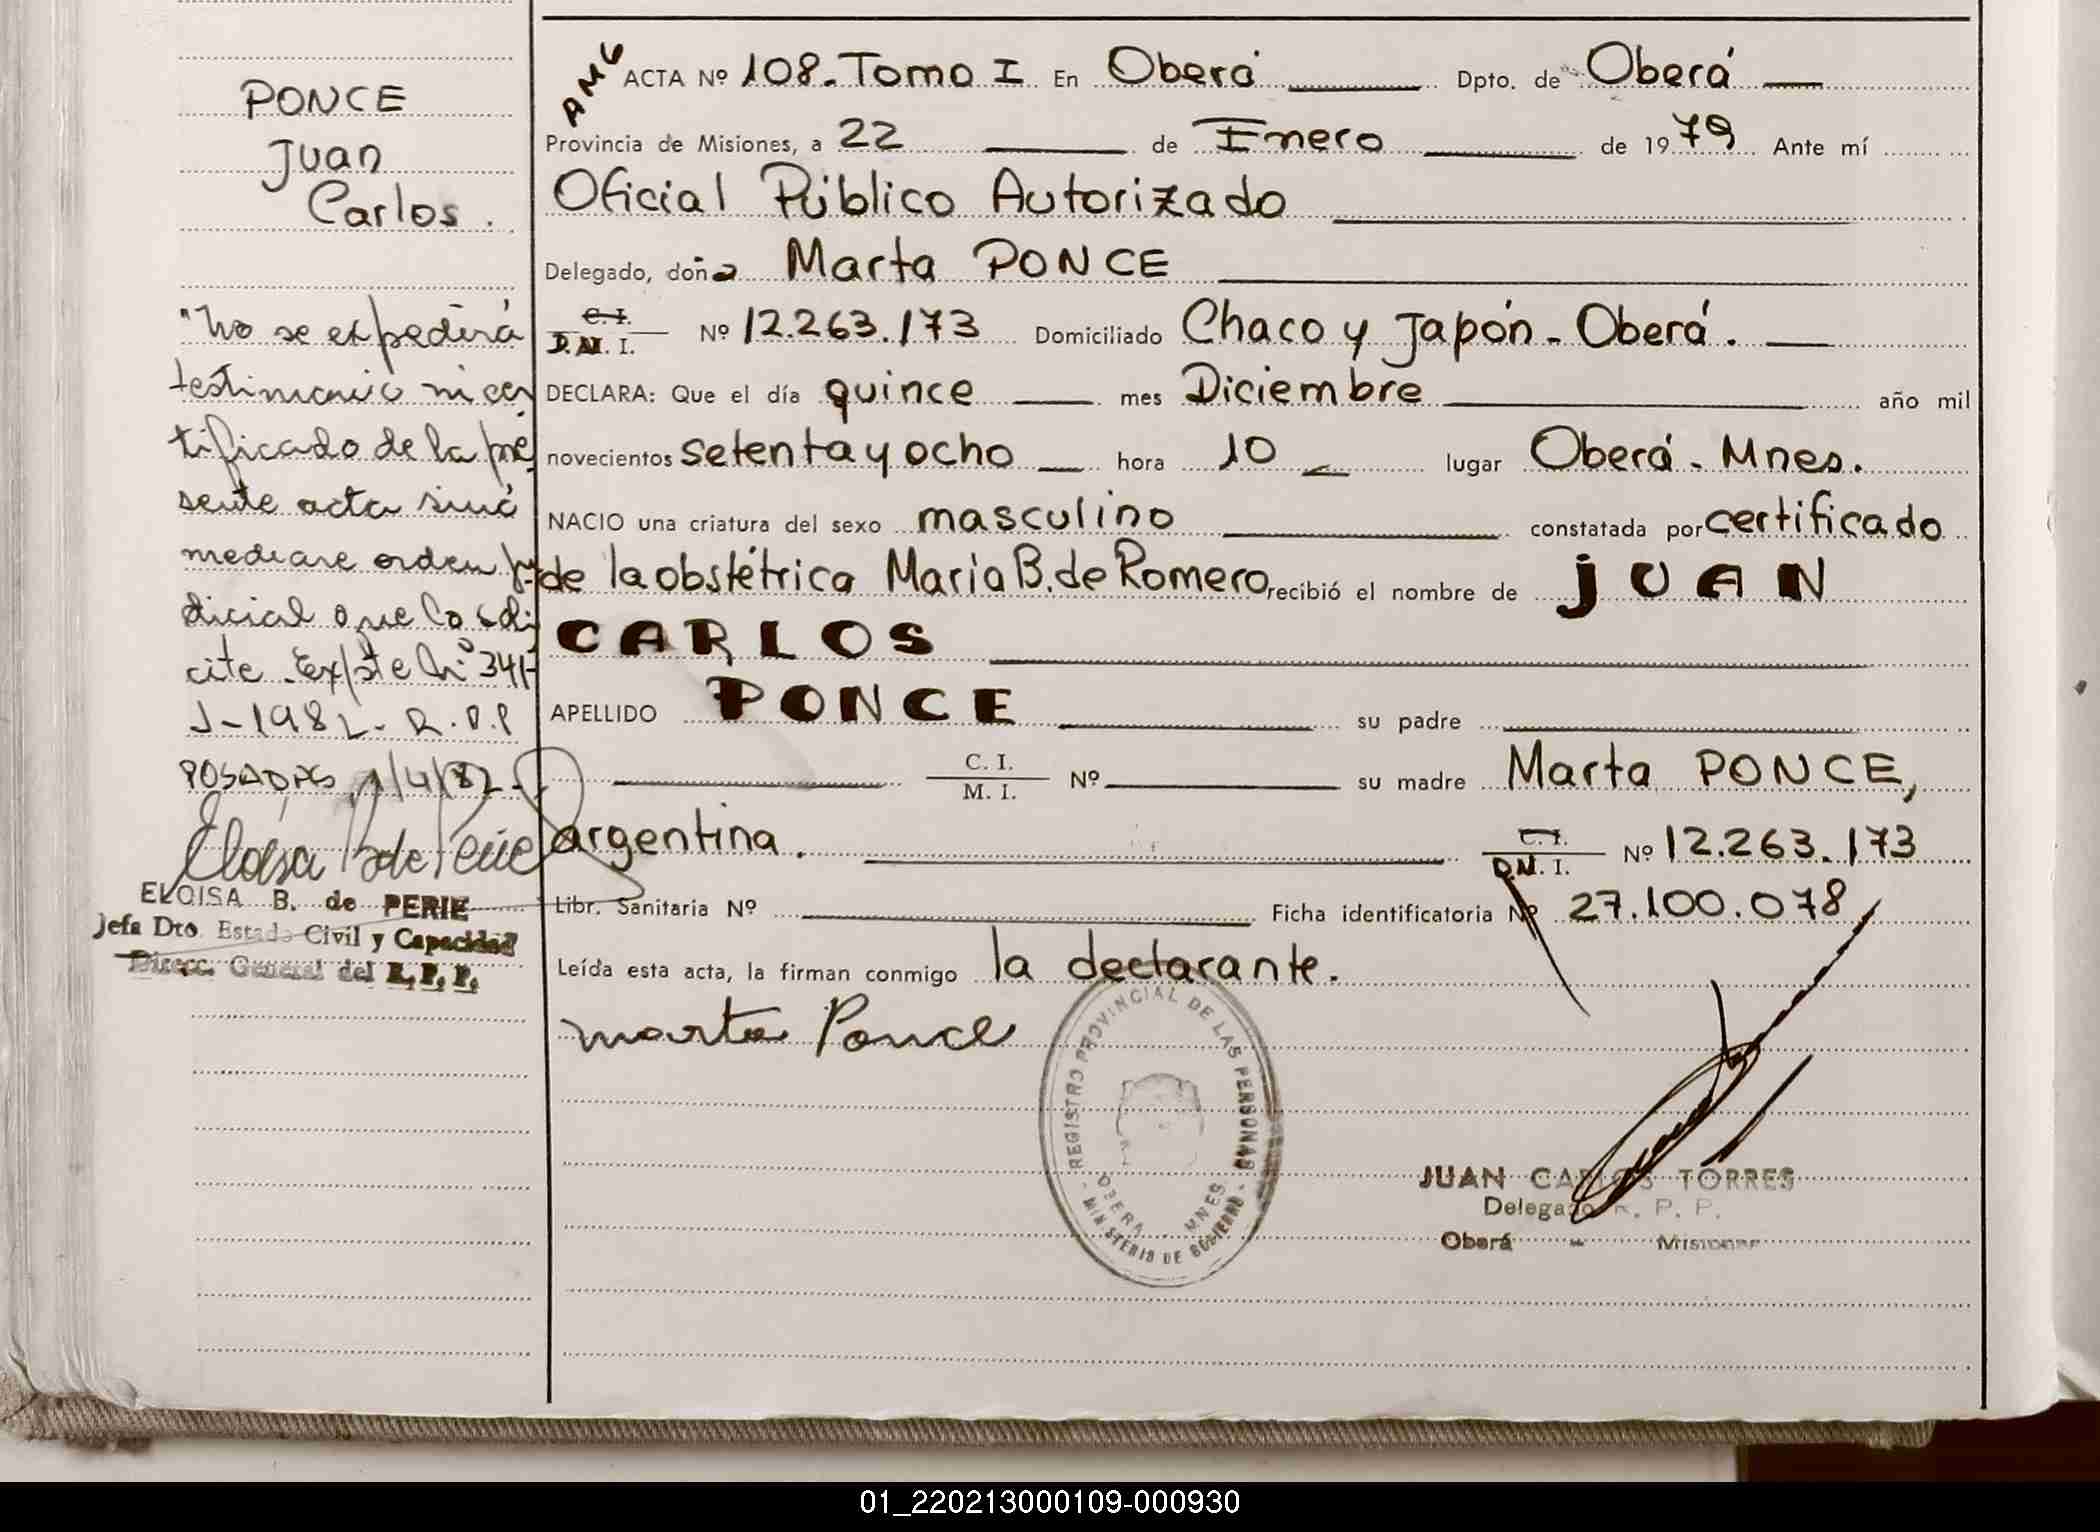 PONCE
Juan
Carlos.
"No se expedirá
testimonio ni cer
tificado de la pre
sente acta sinó
mediare orden ju
dicial que lo soli
cite. Expte Nº 341-
J-1982- R.P.P
POSADAS, 1/4/82-
ELOISA B. de PERIE
Jefa Dto. Estado Civil y Capacidad
Direcc. General del R. P. P.
ACTA Nº 108. Tomo I En Oberá Dpto. de Oberá
Provincia de Misiones, a 22 de Enero de 1979 Ante mí
Oficial Público Autorizado
Delegado, doña Marta PONCE
C.I.
D.N.I. Nº 12.263.173 Domiciliado Chaco y Japón - Oberá.
DECLARA: Que el día quince mes Diciembre año mil
novecientos setenta y ocho hora 10 lugar Oberá - Mnes.
NACIO una criatura del sexo masculino constatada por certificado
de la obstétrica María B. de Romero recibió el nombre de JUAN
CARLOS
APELLIDO PONCE su padre
C. I.
M. I. Nº su madre Marta PONCE,
argentina. C.I.
D.N.I. Nº 12.263.173
Libr. Sanitaria Nº Ficha identificatoria Nº 27.100.078
Leída esta acta, la firman conmigo la declarante.
Marta Ponce
REGISTRO PROVINCIAL DE LAS PERSONAS
OBERA MNES
- MINISTERIO DE GOBIERNO -
JUAN CARLOS TORRES
Delegado R. P. P.
Oberá - Misiones
01_220213000109-000930